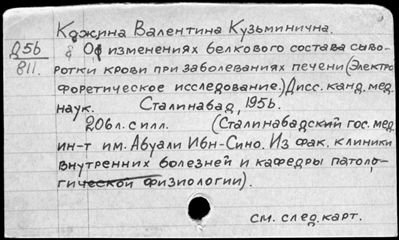 Коржина Валентина Кузьминична.
Д56
811.
Об изменениях белкового состава сыво-
ротки крови при заболеваниях печени (Электро-
форетическое исследование.) Дисс. канд. мед.
наук. Сталинабад, 1956.
206 л. с илл. (Сталинабадский гос. мед.
ин-т им. Абуали Ибн-Сино. Из фак. клиники
внутренних болезней и кафедры патоло-
гической физиологии).
см. след. карт.